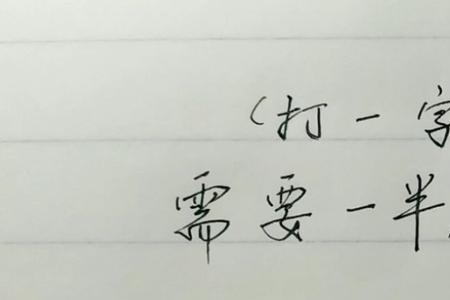 （打一字
需要一半